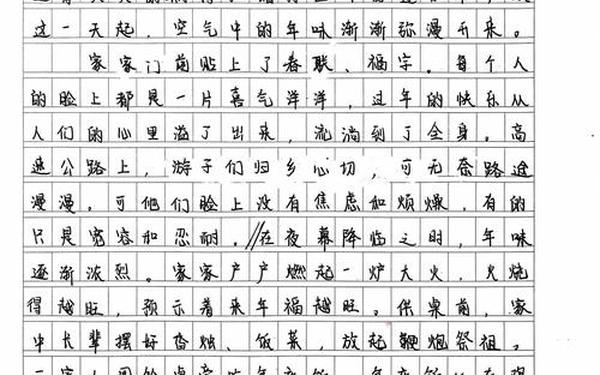 这一天起，空气中的年味渐渐弥漫开来。
家家门前贴上了春联、福字。每个人
的脸上都是一片喜气洋洋，过年的快乐从
人们的心里溢了出来，流淌到了全身。高
速公路上，游子们归乡心切，可无奈路途
漫漫。可他们脸上没有焦虑和烦燥，有的
只是宽容和忍耐。//在夜幕降临之时，年味
逐渐浓烈。家家户户燃起一炉大火，火烧
得越旺，预示着来年福越旺。供桌前，家
中长辈摆好香烛、饭菜，放起鞭炮祭祖。